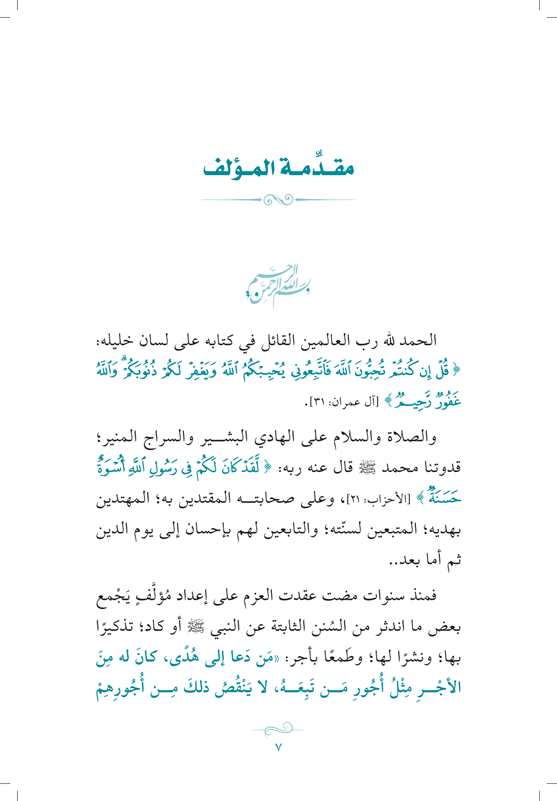 مقدِّمة المؤلف
بسم الله الرحمن الرحيم
الحمد لله رب العالمين القائل في كتابه على لسان خليله:
﴿ قُلْ إِن كُنتُمْ تُحِبُّونَ ٱللَّهَ فَٱتَّبِعُونِى يُحْبِبْكُمُ ٱللَّهُ وَيَغْفِرْ لَكُمْ ذُنُوبَكُمْ ۗ وَٱللَّهُ
غَفُورٌ رَّحِيمٌ ﴾ [آل عمران: ٣١].
والصلاة والسلام على الهادي البشـــير والسراج المنير؛
قدوتنا محمد ﷺ قال عنه ربه: ﴿ لَّقَدْ كَانَ لَكُمْ فِى رَسُولِ ٱللَّهِ أُسْوَةٌ
حَسَنَةٌ ﴾ [الأحزاب: ٢١]، وعلى صحابتـــه المقتدين به؛ المهتدين
بهديه؛ المتبعين لسنّته؛ والتابعين لهم بإحسان إلى يوم الدين
ثم أما بعد..
فمنذ سنوات مضت عقدت العزم على إعداد مُؤلَّفٍ يَجْمع
بعض ما اندثر من السُنن الثابتة عن النبي ﷺ أو كاد؛ تذكيرًا
بها؛ ونشرًا لها؛ وطَمعًا بأجر: «مَن دَعا إلى هُدًى، كانَ له مِنَ
الأجْـــرِ مِثْلُ أُجُورِ مَـــن تَبِعَـــهُ، لا يَنْقُصُ ذلكَ مِـــن أُجُورِهِمْ
٧